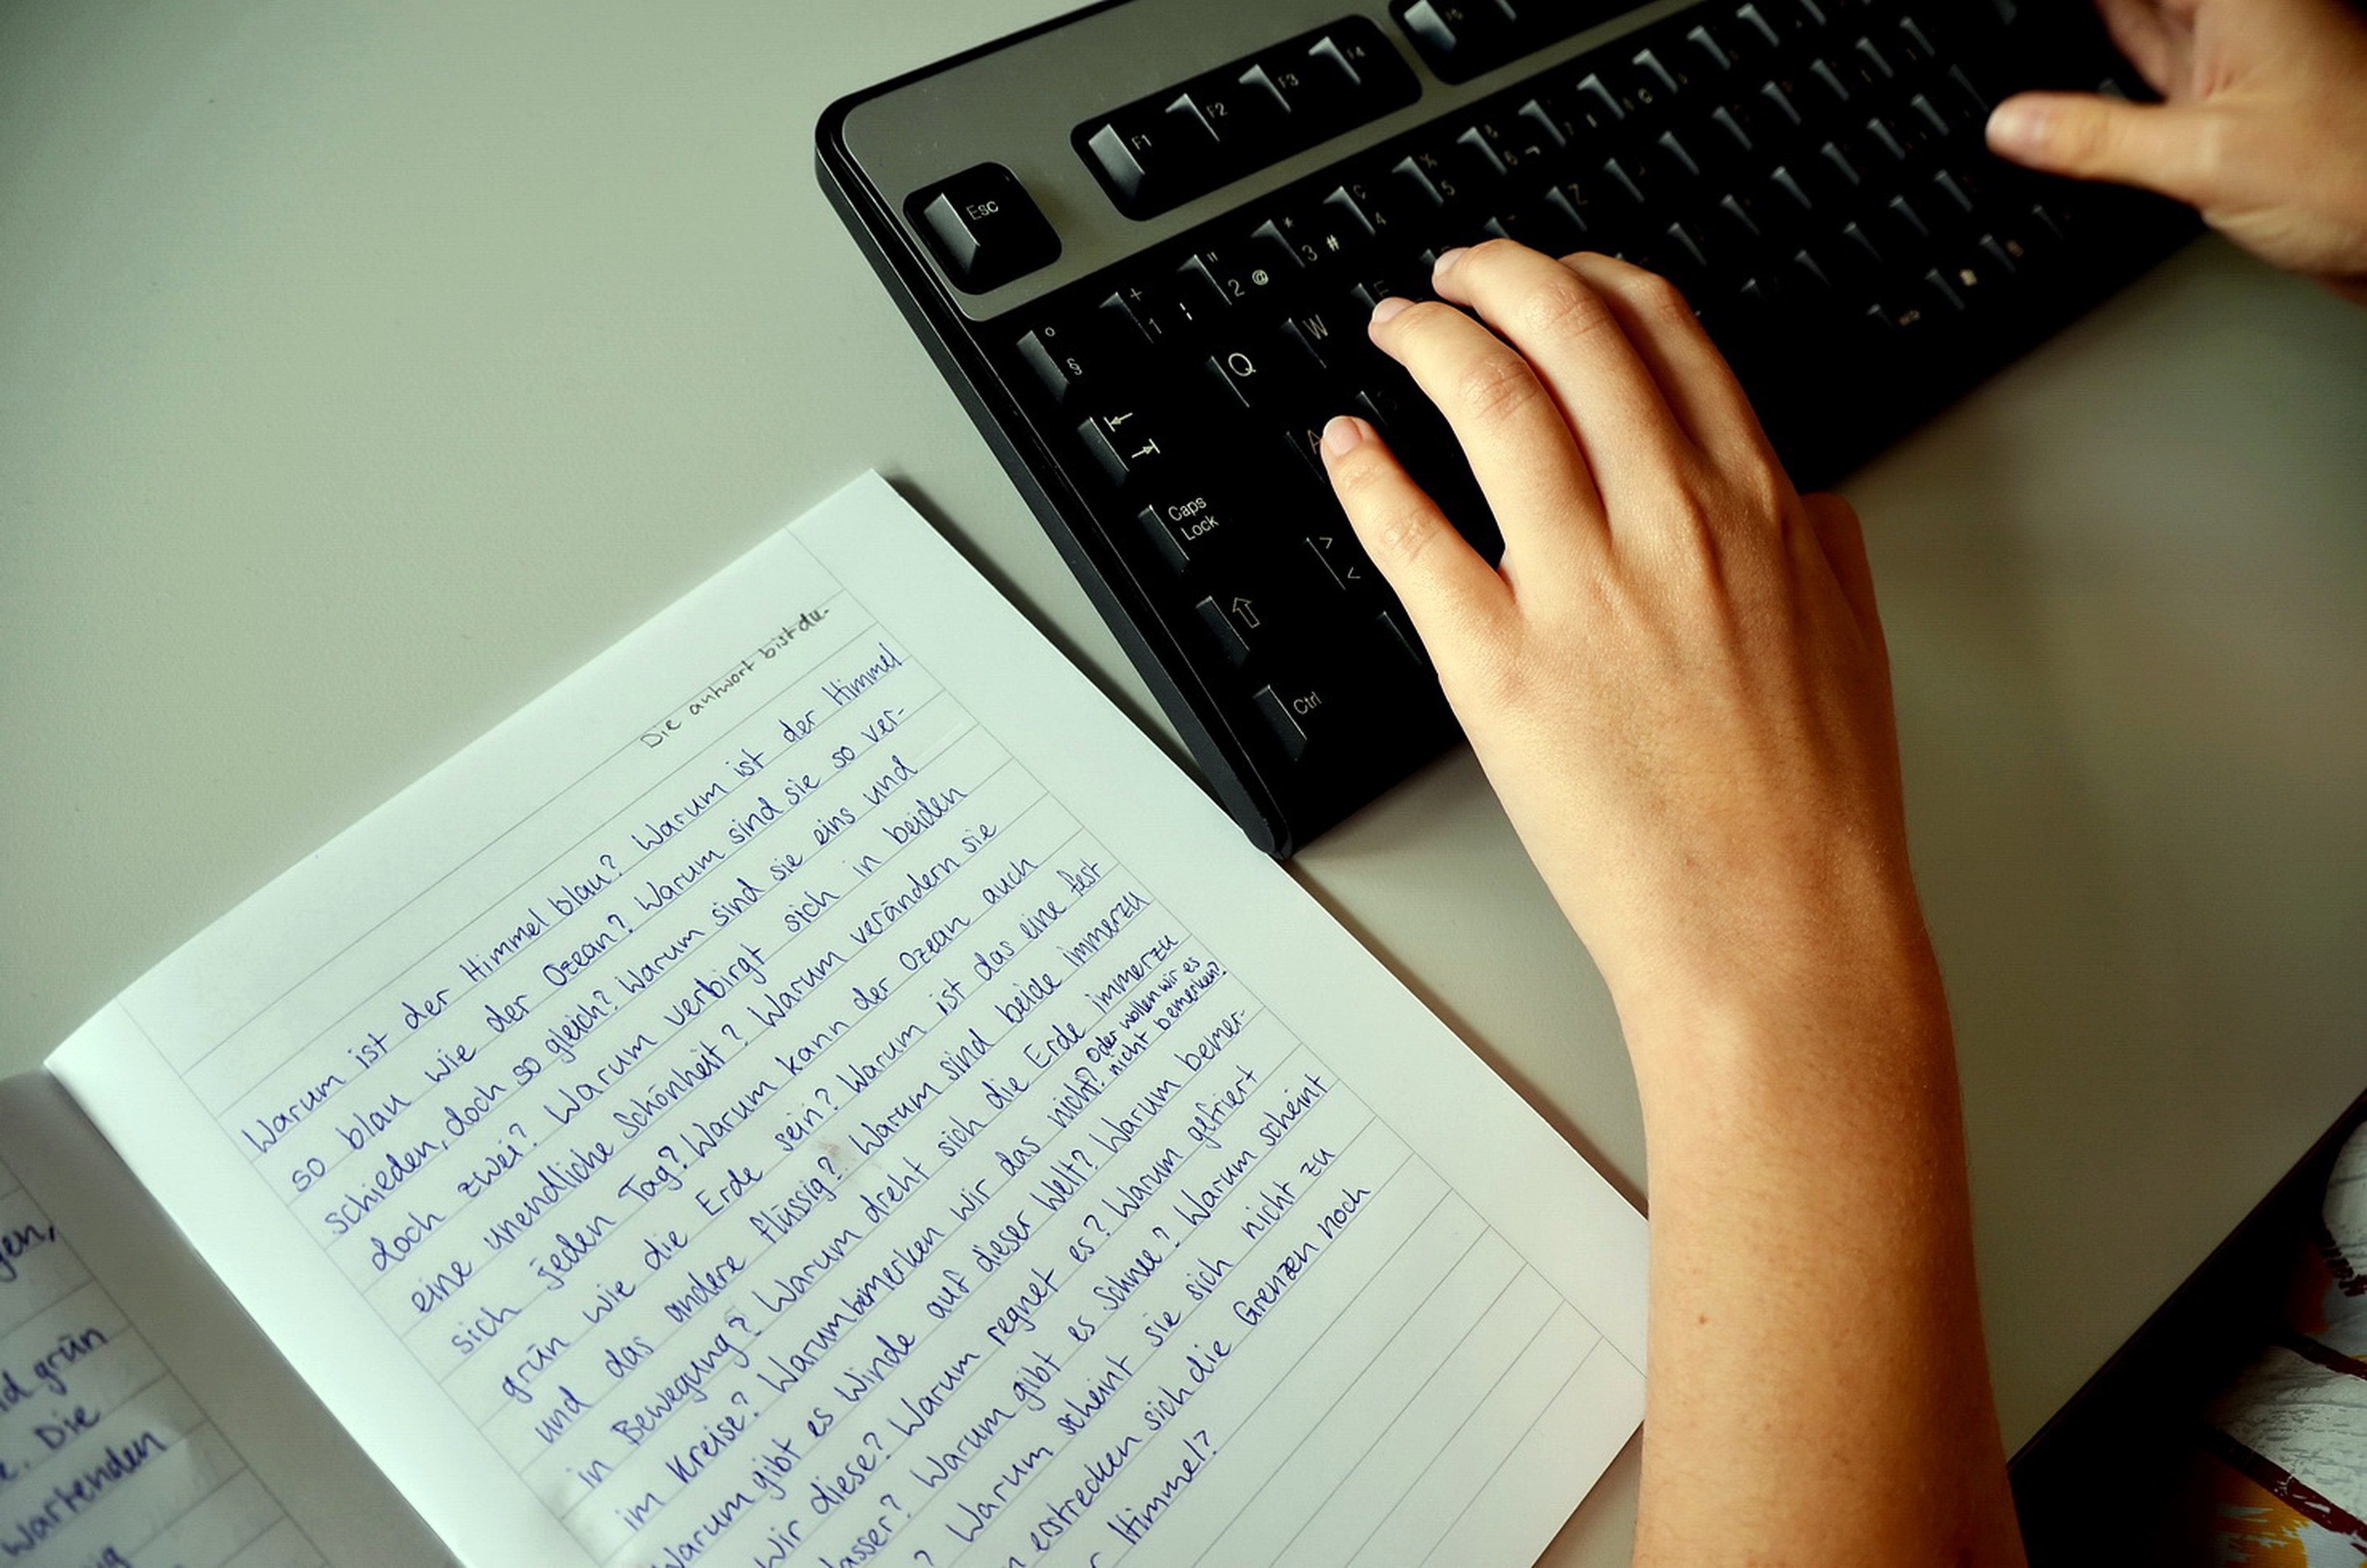 Esc
F1
F2
F3
F4
F5
° §
+ 1 ¦
" 2 @
* 3 #
ç 4
% 5
& 6 ¬
Q
W
E
Z
A
Caps
Lock
> <
Ctrl
Die antwort bist du.
Warum ist der Himmel blau? Warum ist der Himmel
so blau wie der Ozean? Warum sind sie so ver-
schieden, doch so gleich? Warum sind sie eins und
doch zwei? Warum verbirgt sich in beiden
eine unendliche Schönheit? Warum verändern sie
sich jeden Tag? Warum kann der Ozean auch
grün wie die Erde sein? Warum ist das eine fest
und das andere flüssig? Warum sind beide immerzu
in Bewegung? Warum dreht sich die Erde immerzu
im Kreise? Warum bemerken wir das nicht? Oder wollen wir es
nicht bemerken?
Warum gibt es Winde auf dieser Welt? Warum bemer-
wir diese? Warum regnet es? Warum gefriert
asser? Warum gibt es Schnee? Warum scheint
? Warum scheint sie sich nicht zu
n erstrecken sich die Grenzen noch
r Himmel?
gen,
d grün
e. Die
wartenden